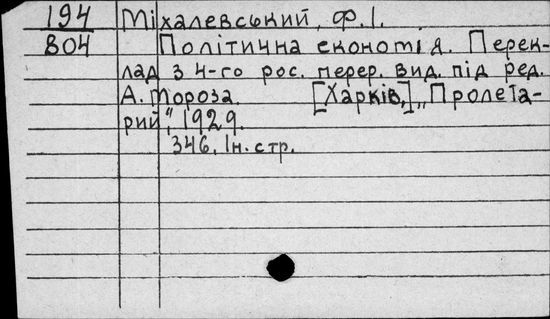 194 Міхалевський, Ф.І.
804 Політична економія. Перек-
лад з 4-го рос. перер. вид. під ред.
А. Мороза. [Харків,] „Пролета-
рий", 1929.
346, Ін. стр.